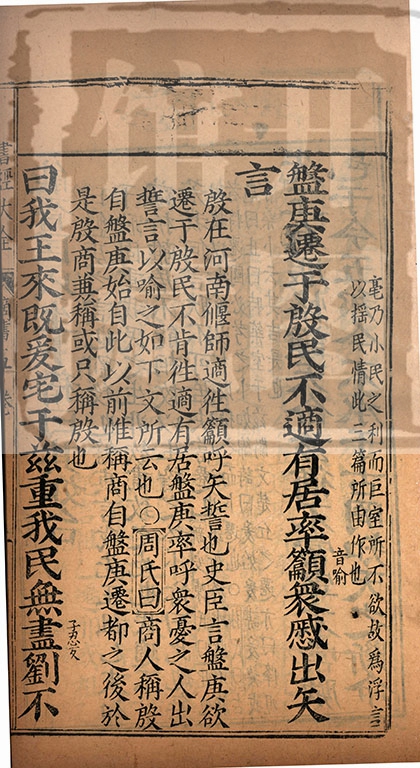 亳乃小民之利而巨室所不欲故為浮言
以搖民情此三篇所由作也
盤庚遷于殷民不適有居率籲衆慼出矢
音喻
言
殷在河南偃師適徃籲呼矢誓也史臣言盤庚欲
遷于殷民不肯徃適有居盤庚率呼衆憂之人出
誓言以喻之如下文所云也○周氏曰商人稱殷
自盤庚始自此以前惟稱商自盤庚遷都之後於
是殷商兼稱或只稱殷也
曰我王來既爰宅于茲重我民無盡劉不
子忍反
書經大全